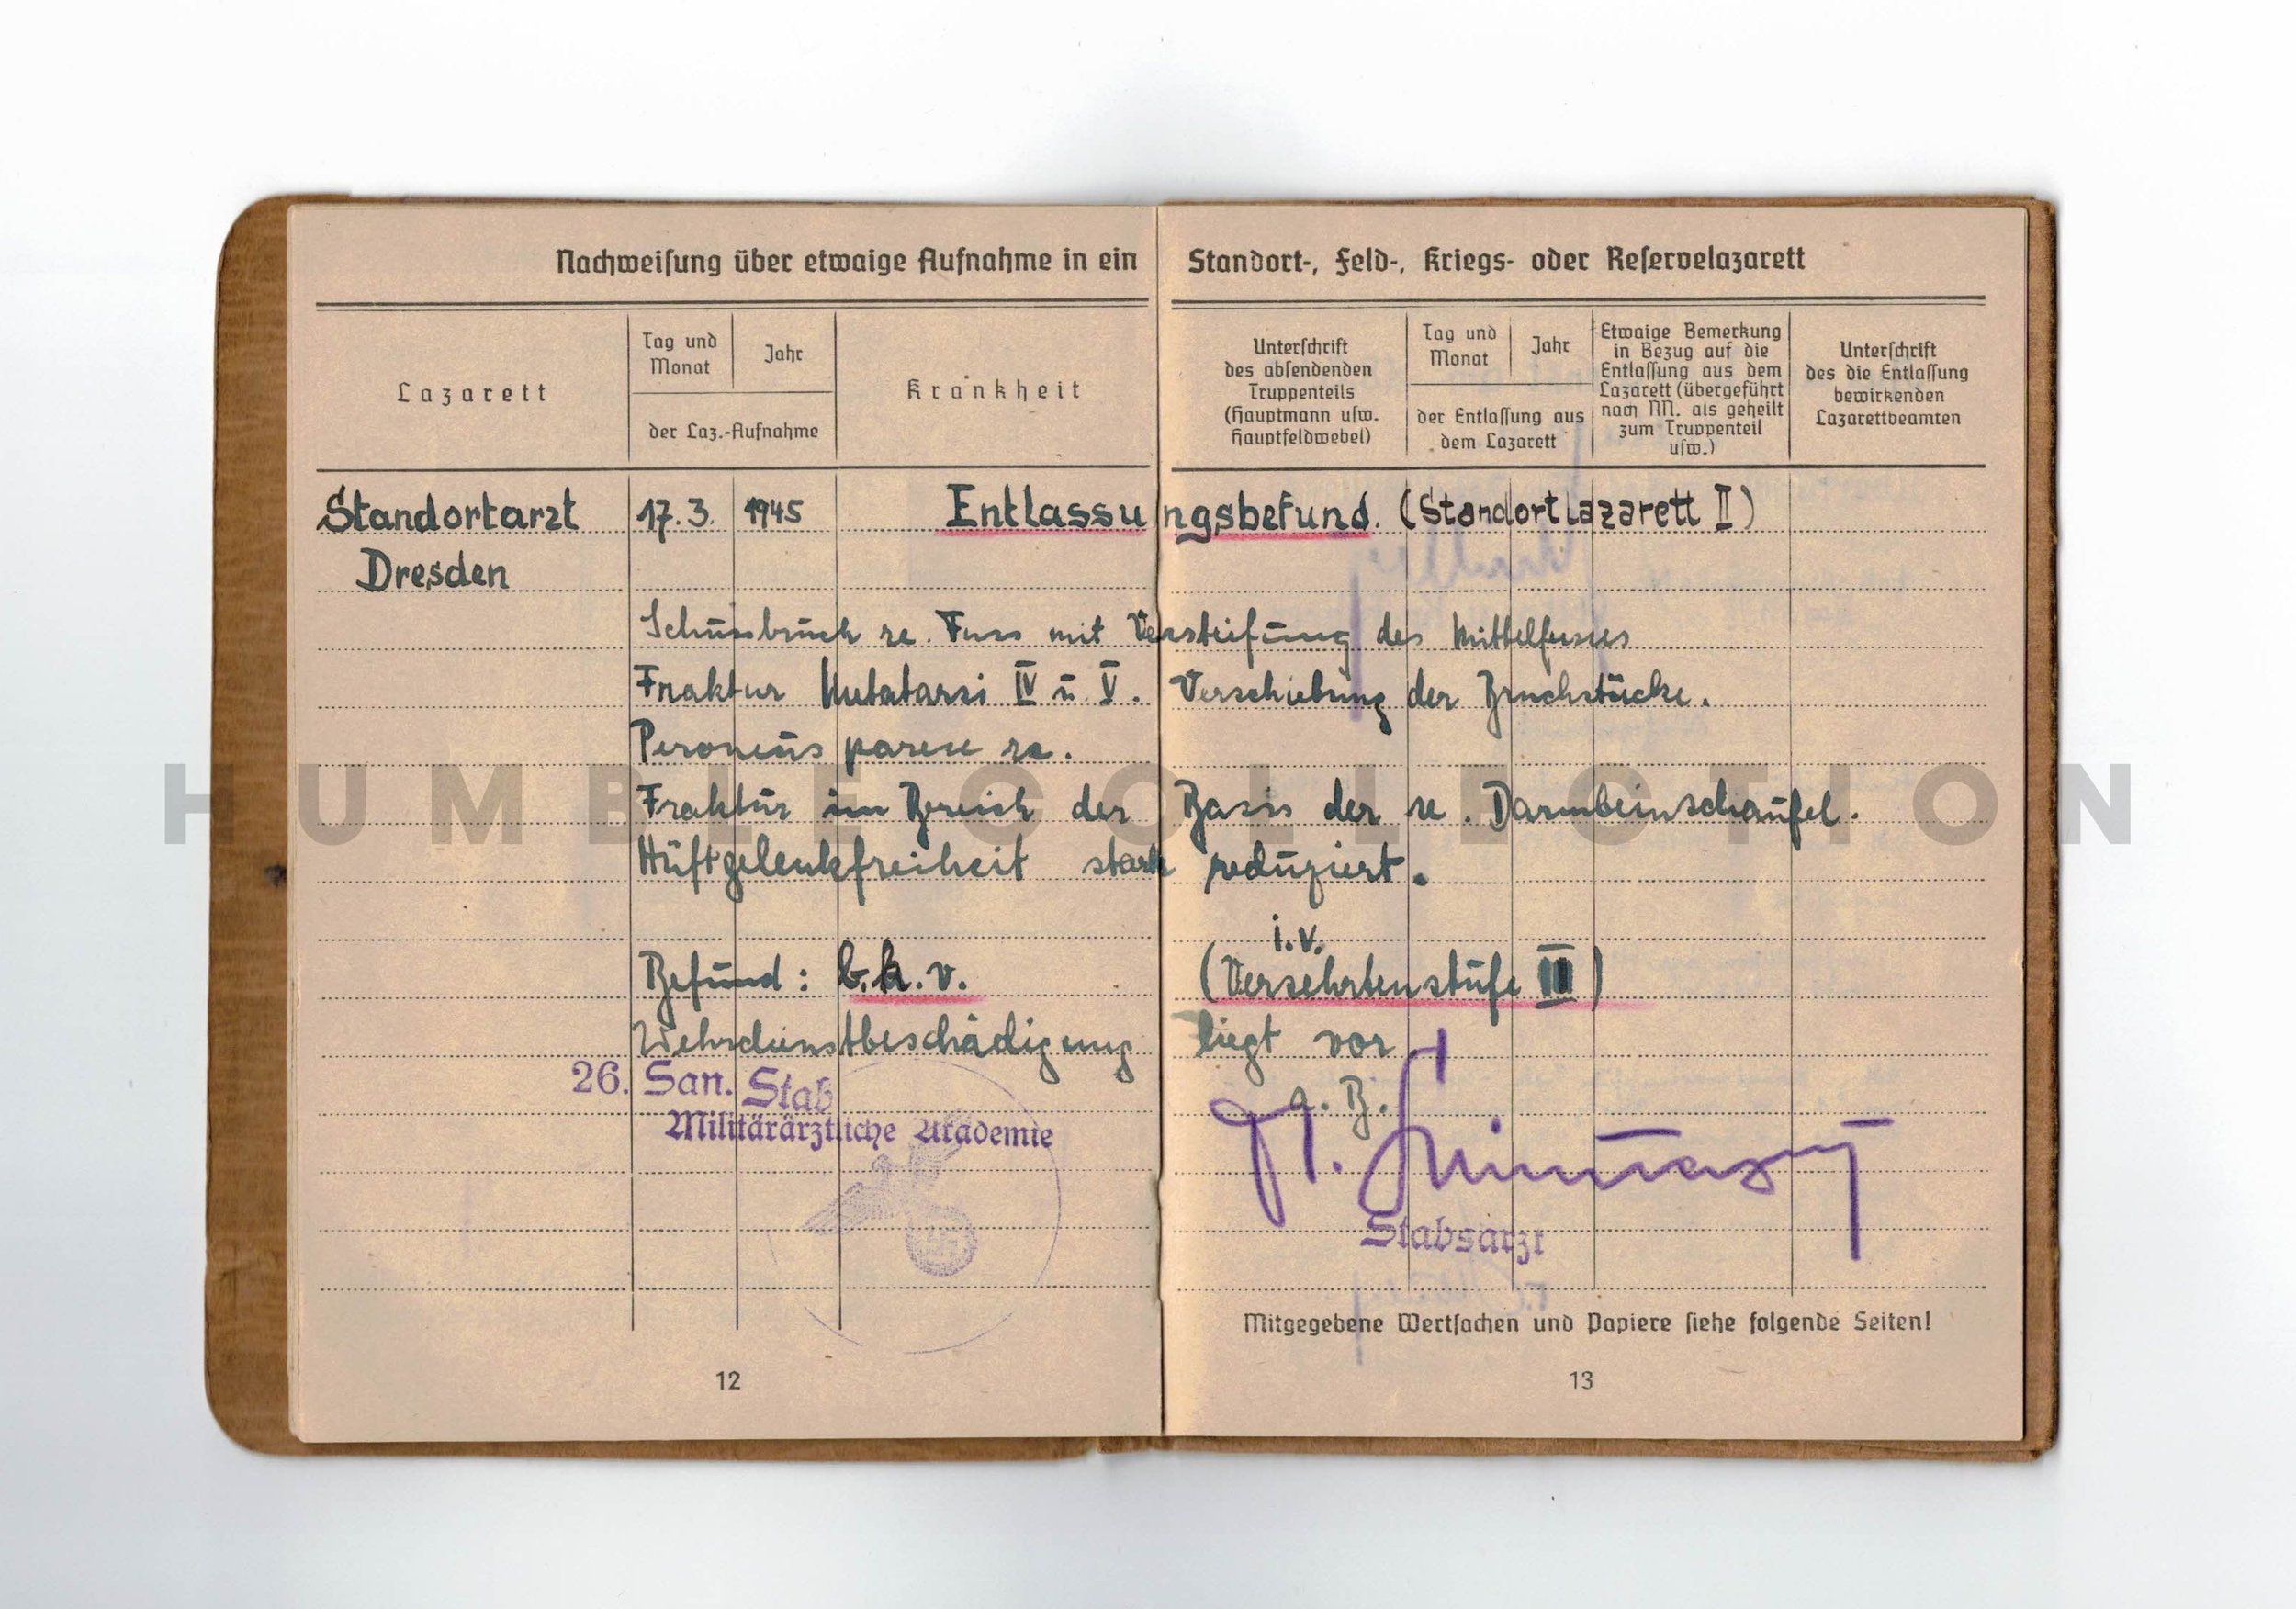 Nachweisung über etwaige Aufnahme in ein Standort-, Feld-, Kriegs- oder Reservelazarett
Lazarett
Tag und Monat
Jahr
der Laz.-Aufnahme
Krankheit
Unterschrift
des absendenden
Truppenteils
(Hauptmann usw.
Hauptfeldwebel)
Tag und Monat
Jahr
der Entlassung aus
dem Lazarett
Etwaige Bemerkung
in Bezug auf die
Entlassung aus dem
Lazarett (übergeführt
nach NN. als geheilt
zum Truppenteil
usw.)
Unterschrift
des die Entlassung
bewirkenden
Lazarettbeamten
Standortarzt 17.3. 1945 Entlassungsbefund. (Standortlazarett II)
Dresden
Schussbruch re. Fuss mit Versteifung des Mittelfusses
Fraktur Metatarsi IV u. V. Verschiebung der Bruchstücke.
Peroneus parese re.
Fraktur im Bereich der Basis der re. Darmbeinschaufel.
Hüftgelenkfreiheit stark reduziert.
i.V.
Befund: b.k.v. (Versehrtenstufe III)
Wehrdienstbeschädigung liegt vor
26. San. Stab
a. B.
Militärärztliche Akademie
Stabsarzt
Mitgegebene Wertsachen und Papiere siehe folgende Seiten!
12
13
HUMBLE COLLECTION